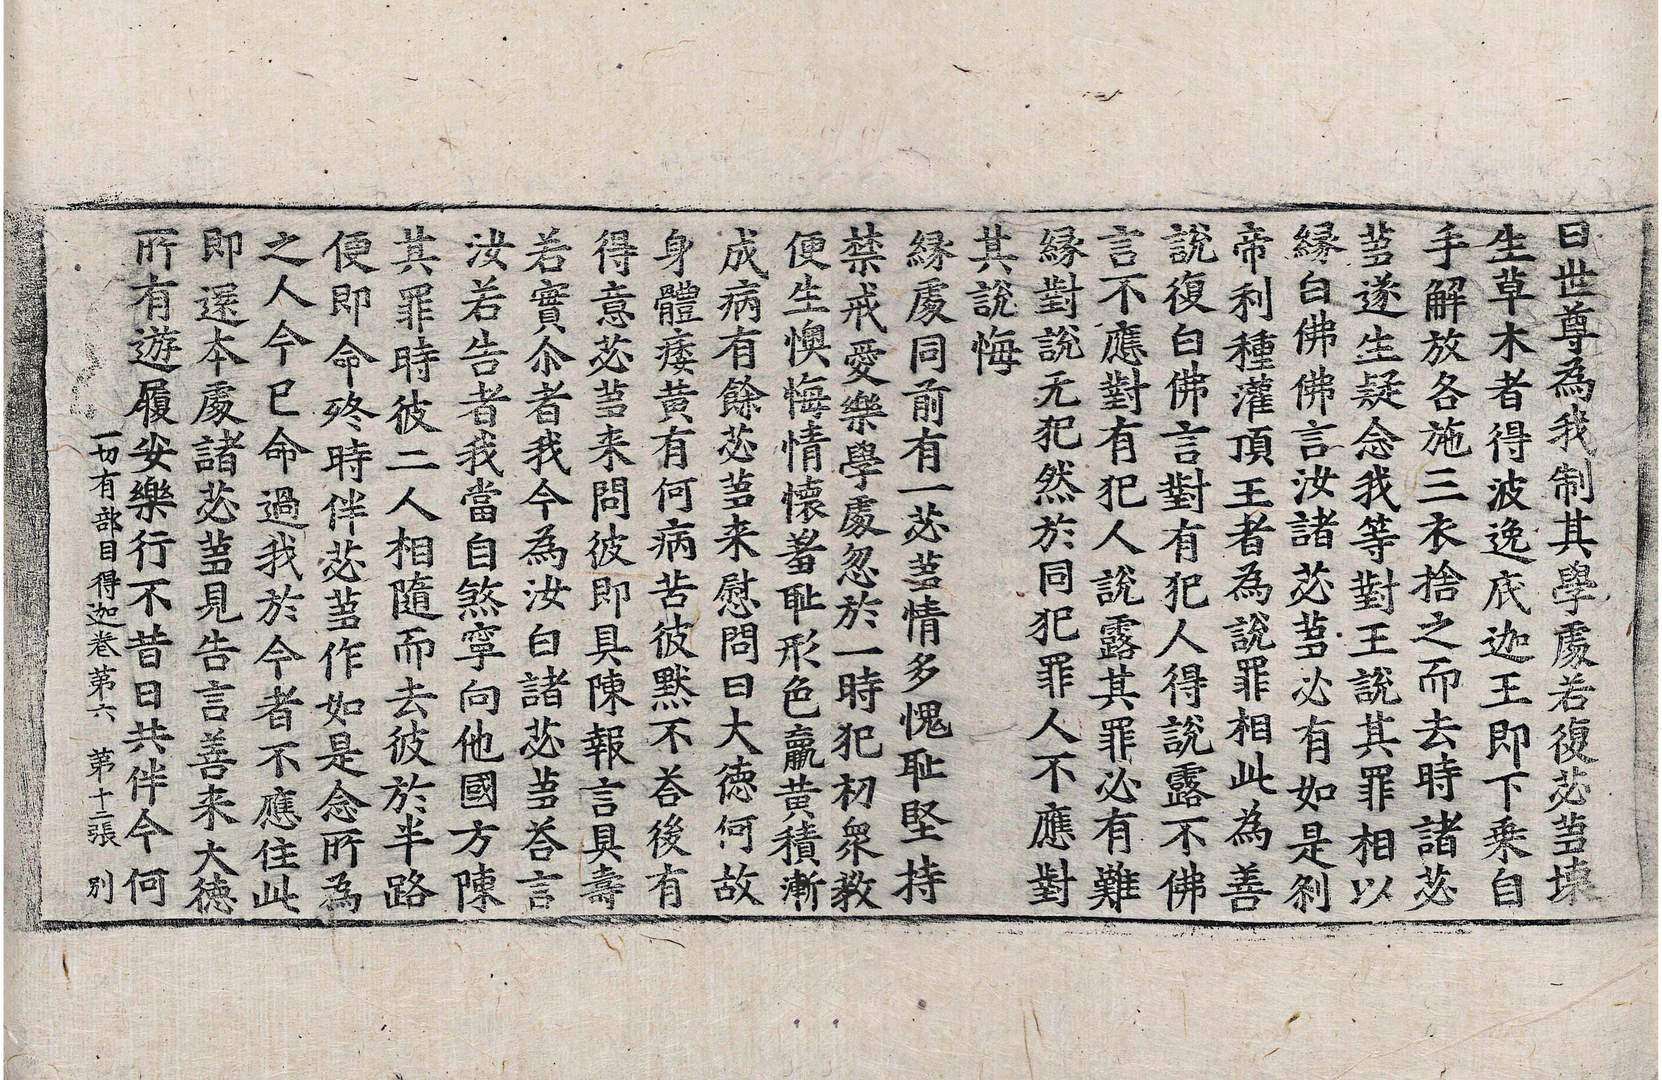 曰世尊為我制其學處若復苾芻壞
生草木者得波逸底迦王即下乗自
手解放各施三衣捨之而去時諸苾
芻遂生疑念我等對王說其罪相以
縁白佛佛言汝諸苾芻必有如是剎
帝利種灌頂王者為說罪相此為善
說復白佛言對有犯人得說露不佛
言不應對有犯人說露其罪必有難
縁對說无犯然於同犯罪人不應對
其說悔
縁處同前有一苾芻情多愧耻堅持
禁戒愛樂學處忽於一時犯初衆教
便生懊悔情懷羞耻形色羸黄積漸
成病有餘苾芻来慰問曰大徳何故
身體痿黄有何病苦彼黙不荅後有
得意苾芻来問彼即具陳報言具壽
若實尒者我今為汝白諸苾芻荅言
汝若告者我當自煞寧向他國方陳
其罪時彼二人相隨而去彼於半路
便即命終時伴苾芻作如是念所為
之人今已命過我於今者不應住此
即還本處諸苾芻見告言善来大德
所有遊履安樂行不昔日共伴今何
一切有部目得迦卷第六 第十二張 別